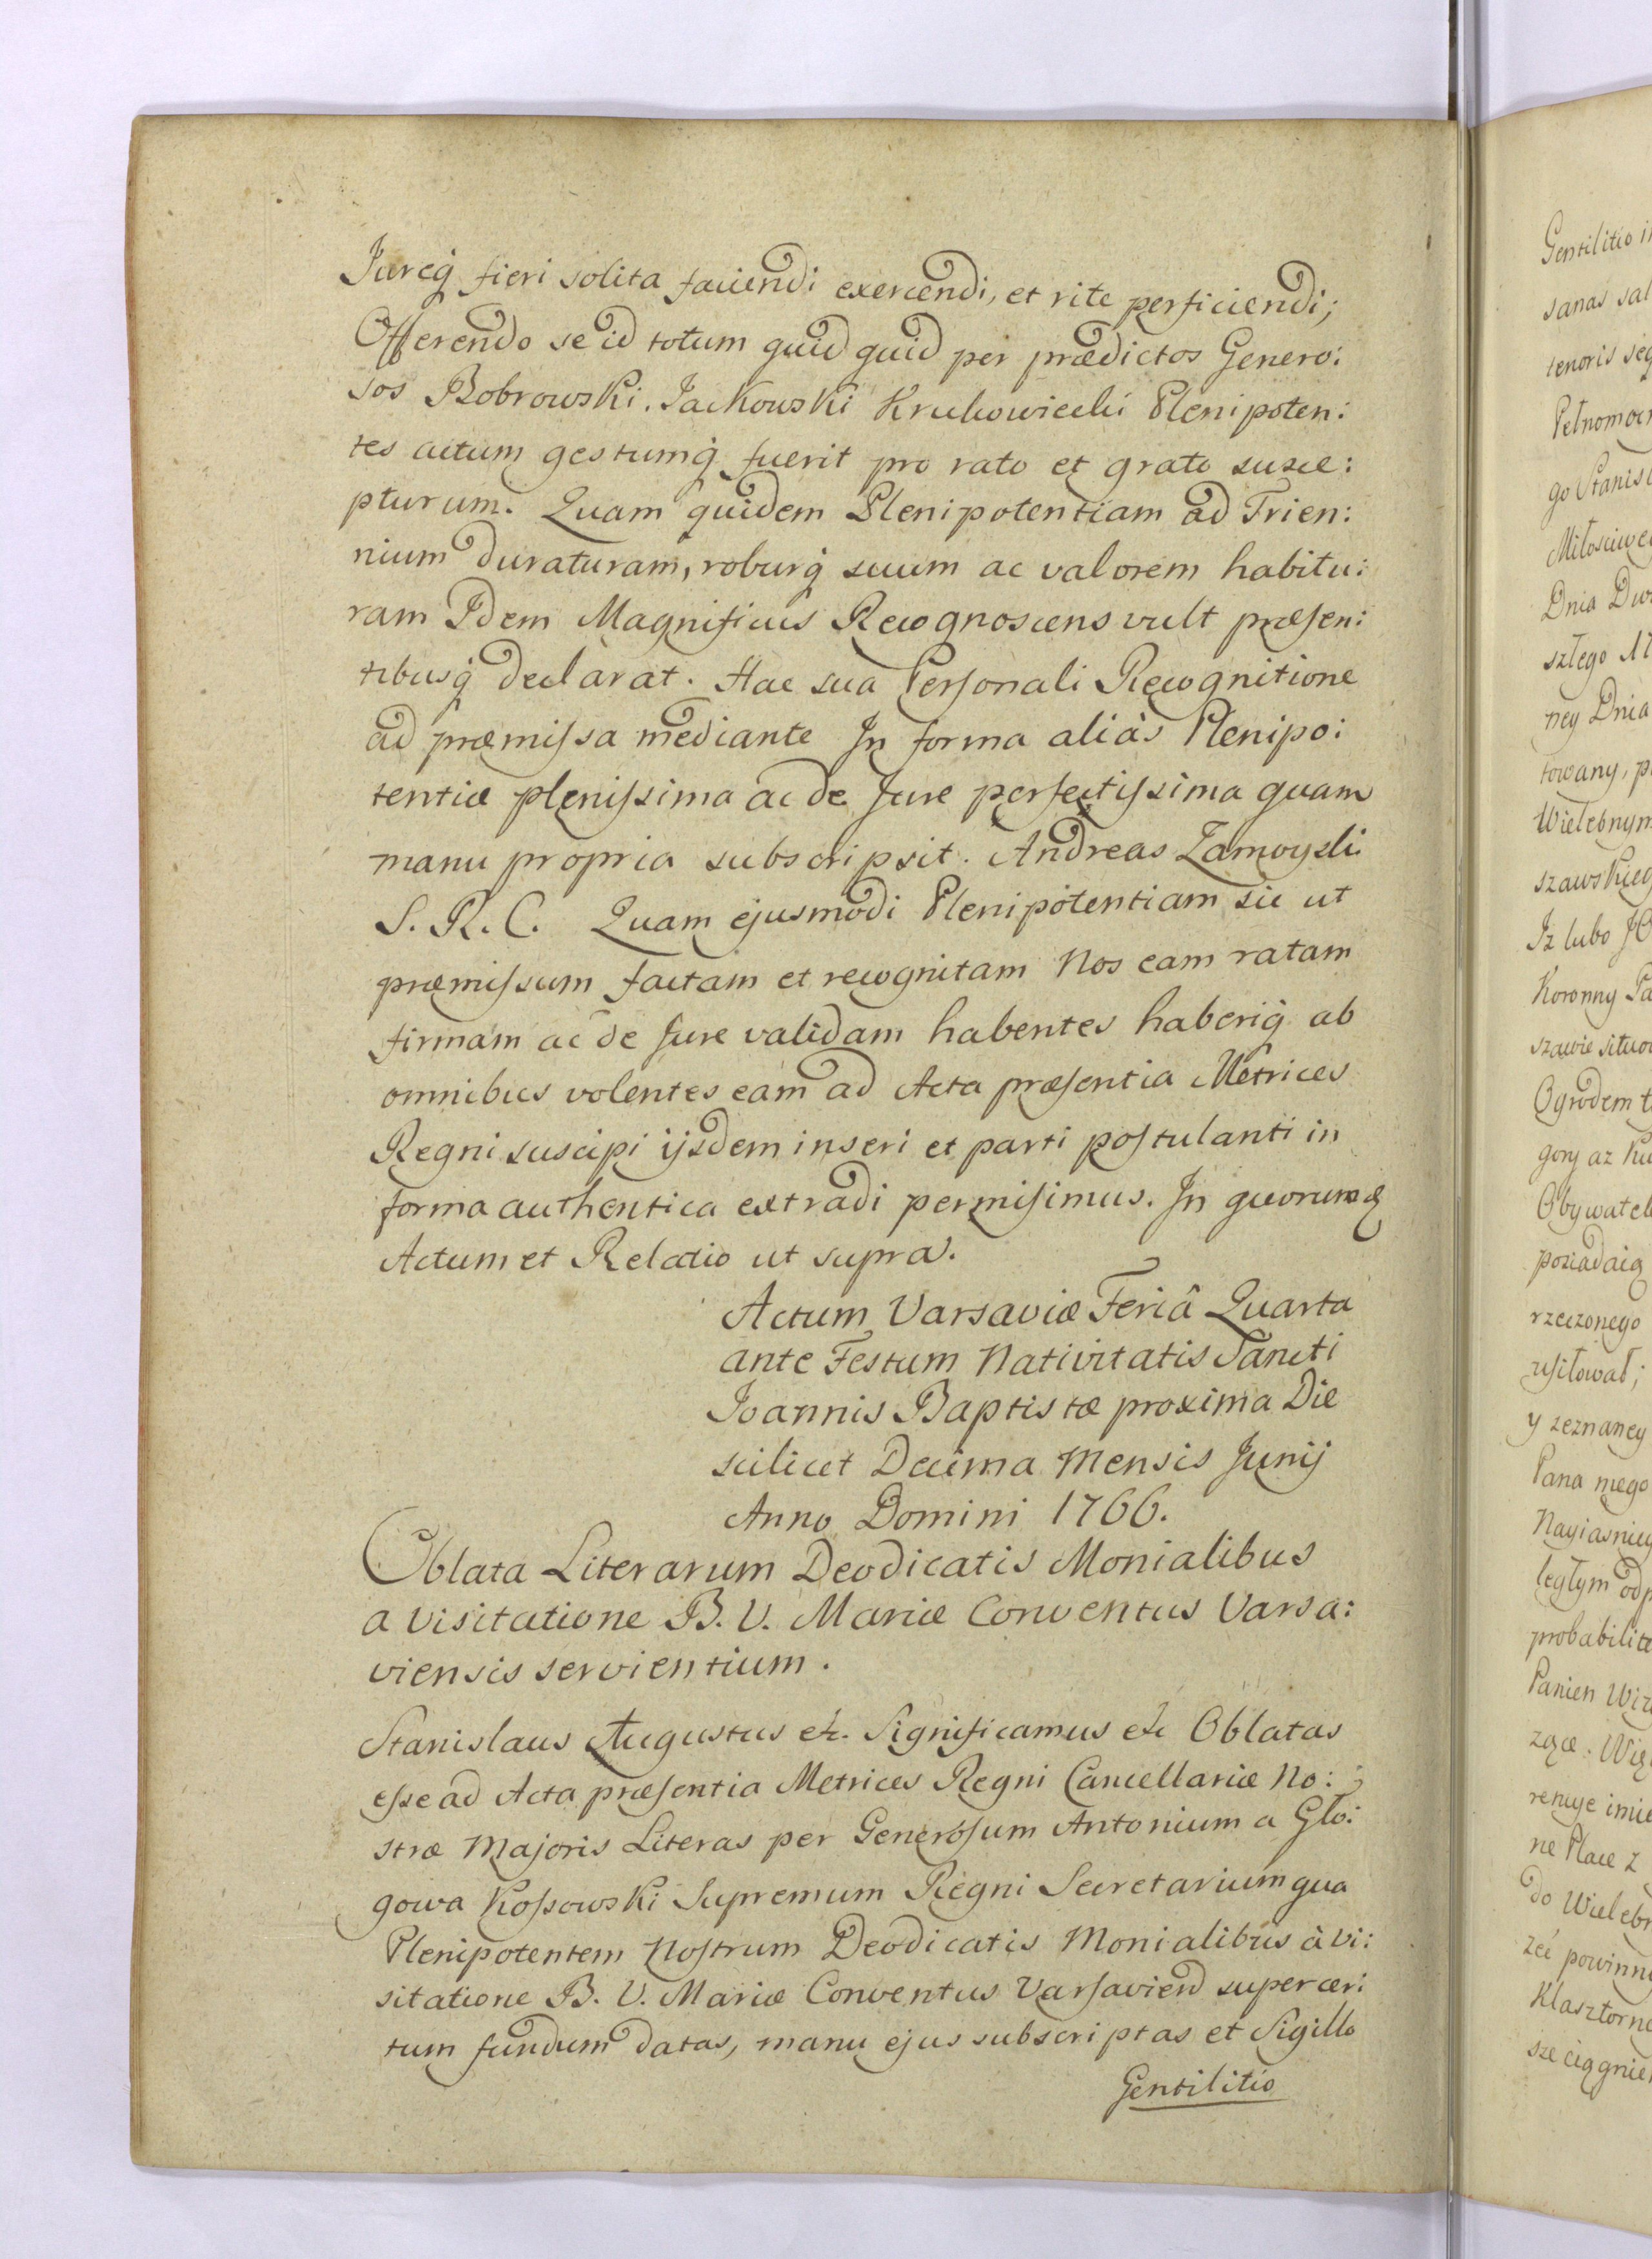 Jureq́ fieri solita faciendi exercendi, et rite perficiendi;
Offerendo se id totum quid quid per prædictos Genero:
sos Bobrowski. Jackowski Krukowiecki Plenipoten:
tes actum gestumq́ fuerit pro rato et grato susce:
pturum. Quam quidem Plenipotentiam ad Trien:
nium duraturam, roburq́ suum ac valorem habitu:
ram Idem Magnificus Recognoscens vult præsen:
tibusq́ declarat. Hac sua Personali Recognitione
ad præmissa mediante In forma aliàs Plenipo:
tentiæ plenissima ac de Jure perfectissima quam
manu propria subscripsit. Andreas Zamoyski
S. R. C. Quam ejusmodi Plenipotentiam sic ut
præmissum factam et recognitam Nos eam ratam
firmam ac de Jure validam habentes haberiq́ ab
omnibus volentes eam ad Acta præsentia Metrices
Regni suscipi ijsdem inseri et parti postulanti in
forma authentica extradi permisimus. In quorum &
Actum et Relatio ut supra.
Actum Varsaviæ Feriâ Quarta
ante Festum Nativitatis Sancti
Joannis Baptistæ proxima Die
scilicet Decima Mensis Junij
Anno Domini 1766.
Oblata Literarum Deodicatis Monialibus
a visitatione B. V. Mariæ Conventus Varsa:
viensis servientium.
Stanislaus Augustus etc. Significamus etc Oblatas
esse ad Acta præsentia Metrices Regni Cancellariæ No:
stræ Majoris Literas per Generosum Antonium a Gło:
gowa Kossowski Supremum Regni Secretarium qua
Plenipotentem Nostrum Deodicatis Monialibus à vi:
sitatione B. V. Mariæ Conventus Varsavien super cer:
tum fundum datas, manu ejus subscriptas et Sigillo
Gentilitio
Gentilitio
sanas
tenoris
go
Dnia
szłego
ney Dnia
towany,
Iz lubo
Koronny
szawie
Ogrodem
gory az
rzeczonego
usiłował;
y zeznaney
Pana mego
Panien
ne Place z
do
zeć powinny